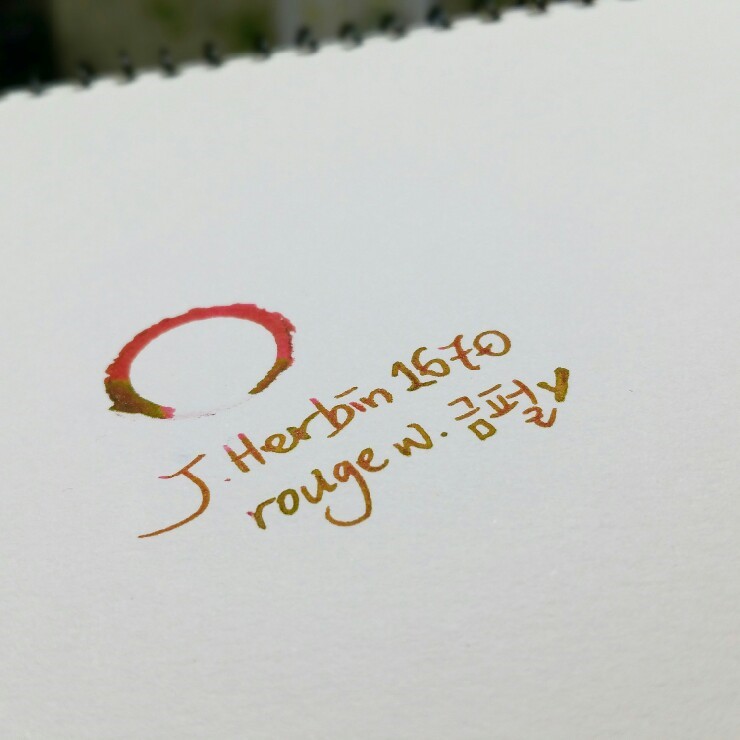 J. Herbin 1670
rouge w. 금펄v